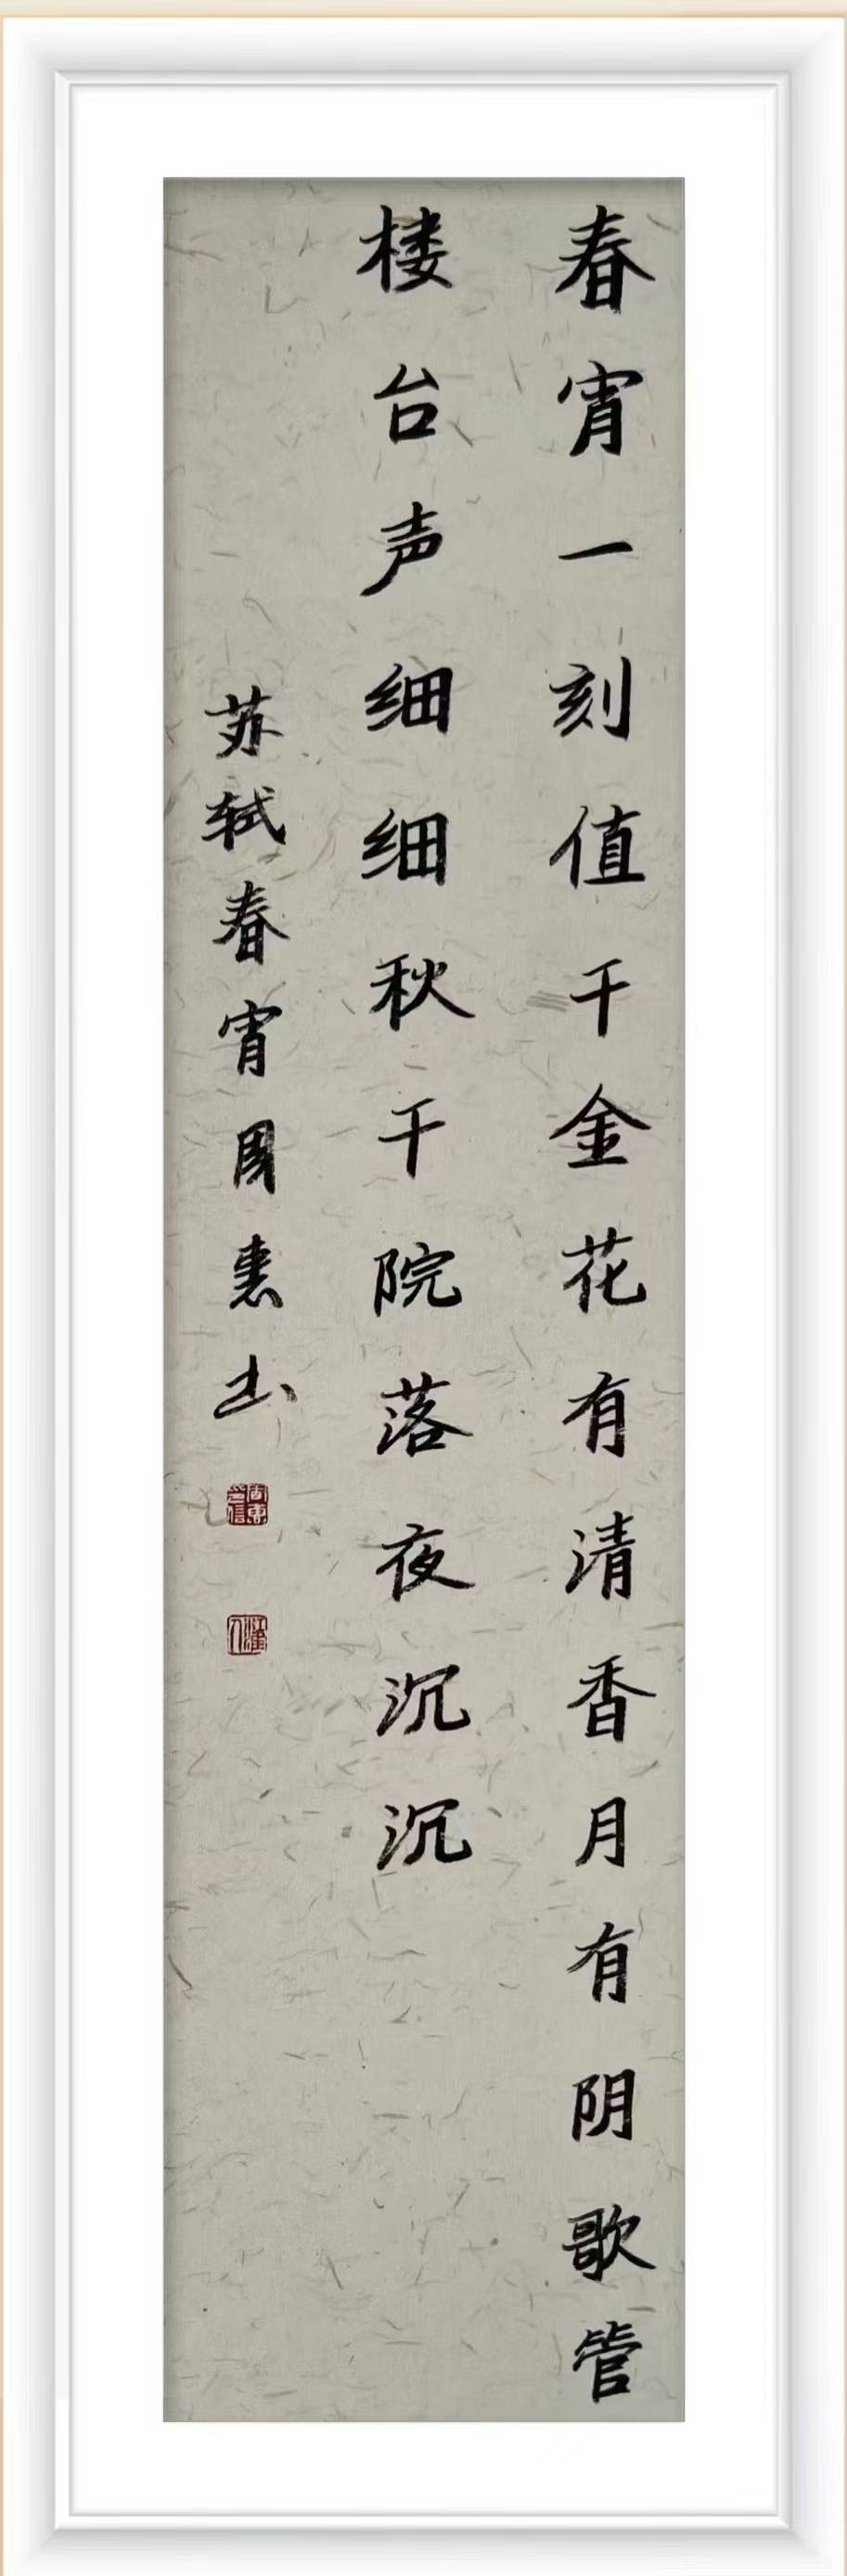 春宵一刻值千金花有清香月有阴歌管
楼台声细细秋千院落夜沉沉
苏轼春宵周惠书